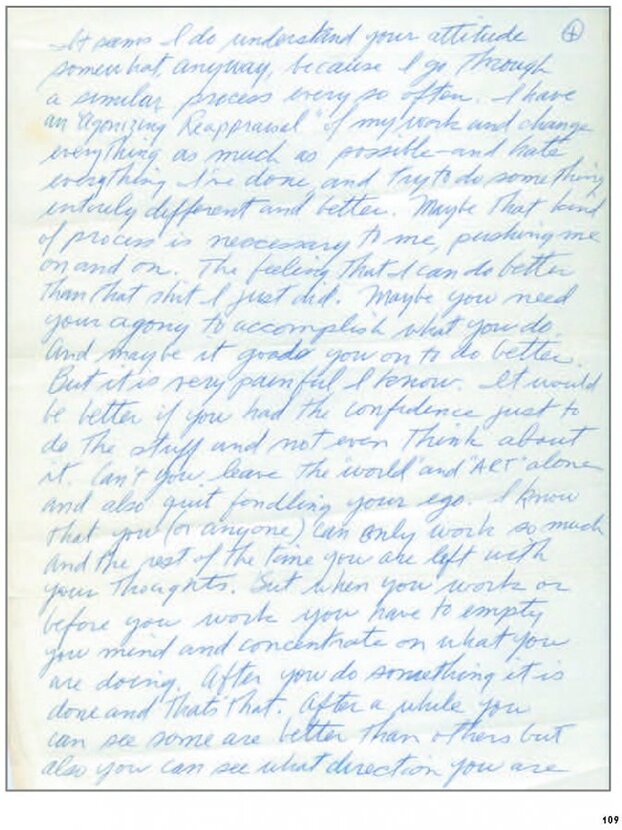 It seems I do understand your attitude 4
somewhat, anyway, because I go through
a similar process every so often. I have
an "Agonizing Reappraisal" of my work and change
everything as much as possible—and hate
everything I've done, and try to do something
entirely different and better. Maybe that kind
of process is neccessary to me, pushing me
on and on. The feeling that I can do better
than that shit I just did. Maybe you need
your agony to accomplish what you do.
And maybe it goads you on to do better.
But it is very painful I know. It would
be better if you had the confidence just to
do the stuff and not even think about
it. Can't you leave the "world" and "ART" alone
and also quit fondling your ego. I know
that you (or anyone) can only work so much
and the rest of the time you are left with
your thoughts. But when you work or
before you work you have to empty
you mind and concentrate on what you
are doing. After you do something it is
done and thats that. After a while you
can see some are better than others but
also you can see what direction you are
109